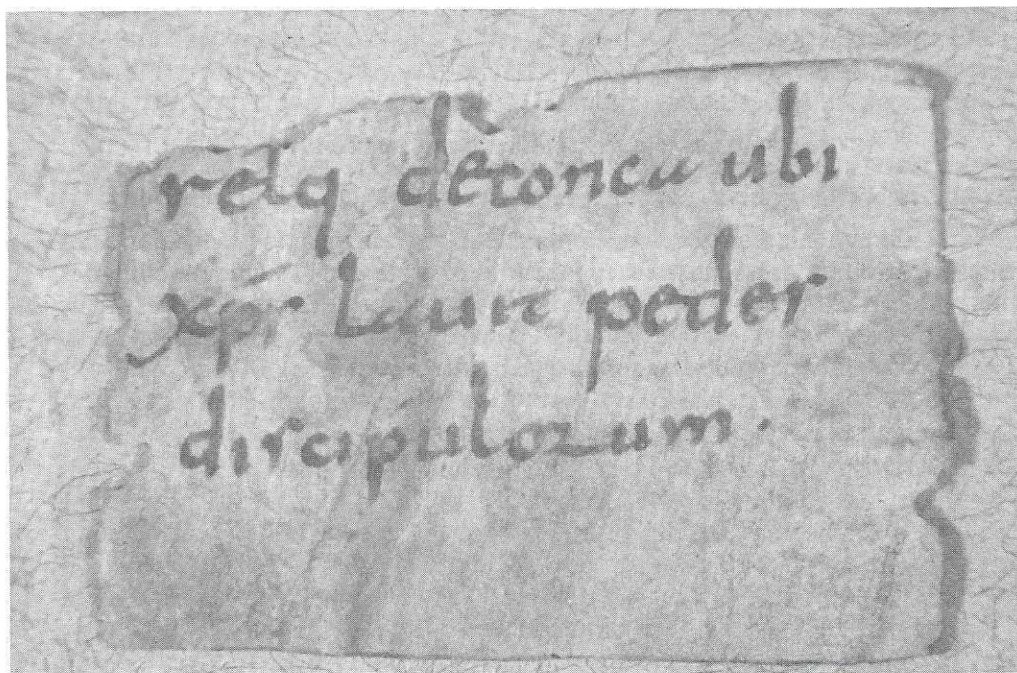 relq de conca ubi
xps lauit pedes
discipulorum.